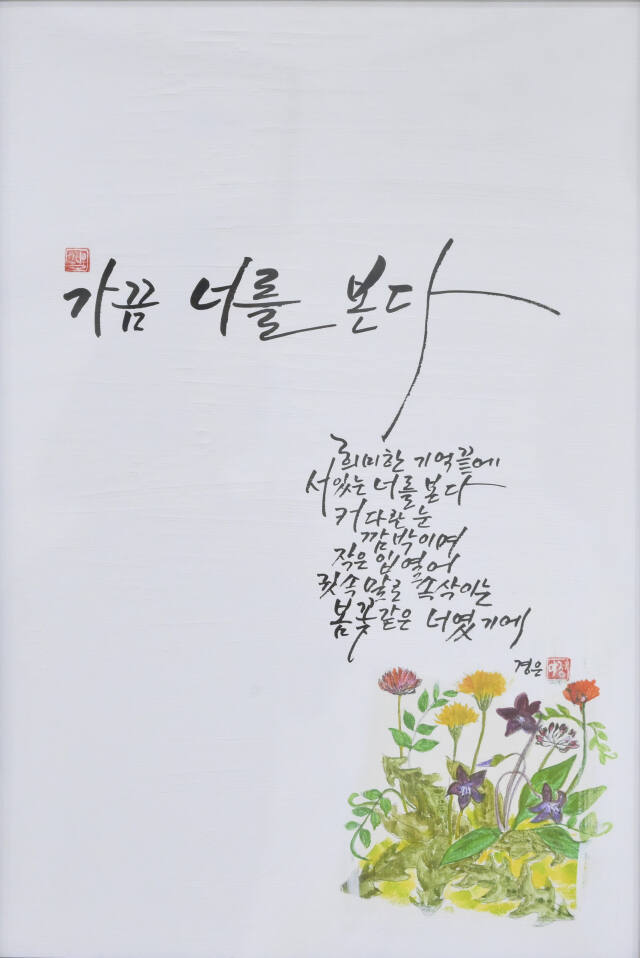 가끔 너를 본다
희미한 기억 끝에
서있는 너를 본다
커다란 눈
깜박이며
작은 입 열어
귓속말로 속삭이는
봄꽃같은 너였기에
경은